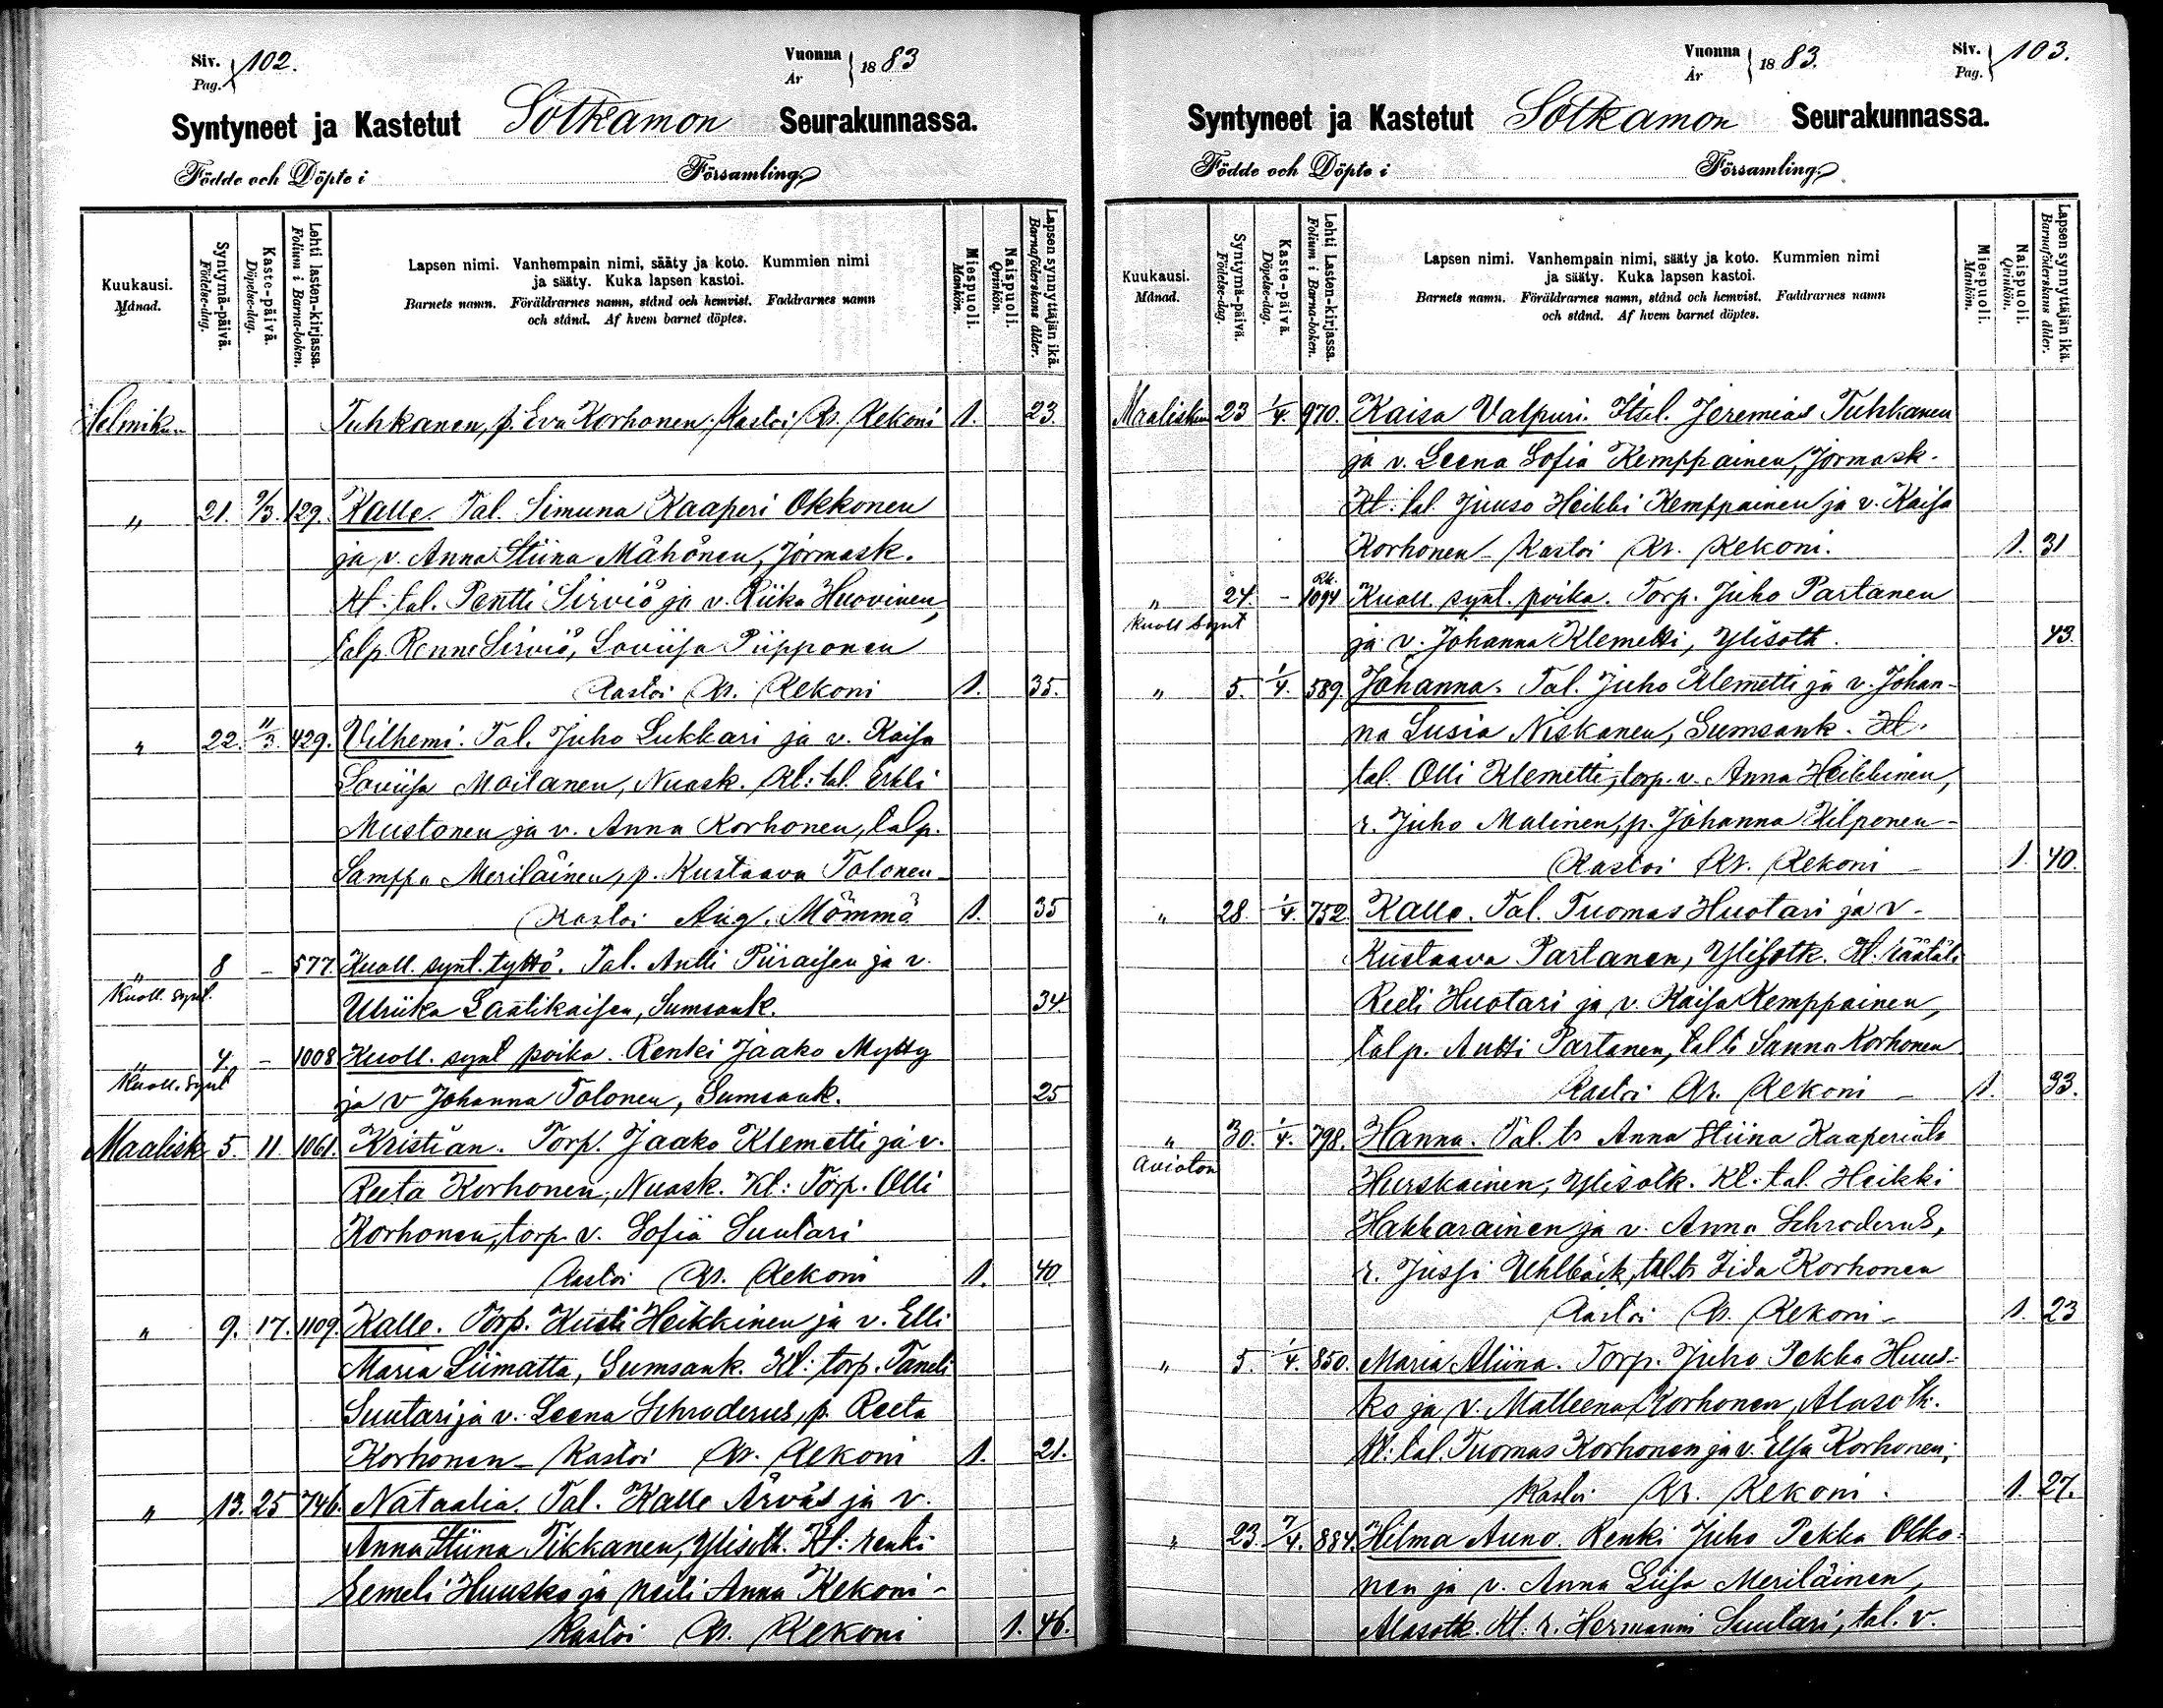 Siv. 102.
Pag.
Vuonna 1883
År
Syntyneet ja Kastetut Sotkamon Seurakunnassa.
Födde och Döpte i Församling.
Kuukausi.
Månad.
Syntymä-päivä.
Födelse-dag.
Kaste-päivä.
Döpelse-dag.
Lehti lasten-kirjassa.
Folium i Barna-boken.
Lapsen nimi. Vanhempain nimi, sääty ja koto. Kummien nimi
ja sääty. Kuka lapsen kastoi.
Barnets namn. Föräldrarnes namn, stånd och hemvist. Faddrarnes namn
och stånd. Af hvem barnet döptes.
Miespuoli.
Mankön.
Naispuoli.
Qvinkön.
Lapsen synnyttäjän ikä.
Barnaföderskans ålder.
Helmik. Tuhkanen, p. Eva Korhonen. Kastoi Kr. Rekoni 1. 23.
" 21. 9/3. 129. Kalle. Tal. Simuna Kaaperi Okkonen
ja v. Anna Stiina Mähönen, Jormask.
Kl. tal. Pentti Sirviö ja v. Riika Huovinen,
talp. Renne Sirviö, Loviisa Piipponen
Kastoi Kr. Rekoni 1. 35.
" 22. 11/3. 429. Vilhemi. Tal. Juho Lukkari ja v. Kaisa
Loviisa Moilanen, Nuask. Kl: tal. Erkki
Mustonen ja v. Anna Korhonen, talp.
Samppa Meriläinen, p. Kustaava Tolonen
Kastoi Aug. Mömmö 1. 35
" 8 - 577. Kuoll. synt. tyttö. Tal. Antti Piiraisen ja v.
Kuoll. synt.
Ulriika Laatikaisen, Sumsank. 34.
" 4. - 1008 Kuoll. synt poika. Renki Jaako Mytty
Kuoll. synt
ja v Johanna Tolonen, Sumsank. 25
Maalisk 5. 11. 1061. Kristian. Torp. Jaako Klemetti ja v.
Reeta Korhonen, Nuask. Kl: Torp. Olli
Korhonen, torp. v. Sofia Suutari
Kastoi Kr. Rekoni 1. 40
" 9. 17. 1109. Kalle. Torp. Kusti Heikkinen ja v. Elli
Maria Liimatta, Sumsank. Kl: torp. Taneli
Suutari ja v. Leena Schroderus, p. Reeta
Korhonen - Kastoi Kr. Rekoni 1. 21.
" 13. 25 746. Nataalia. Tal. Kalle Ärväs ja v.
Anna Stiina Tikkanen, Ylisotk. Kl: renki
Eemeli Huusko ja neiti Anna Kekoni -
Kastoi Kr. Rekoni 1. 46.
Vuonna 1883.
År
Siv. 103.
Pag.
Syntyneet ja Kastetut Sotkamon Seurakunnassa.
Födde och Döpte i Församling.
Kuukausi.
Månad.
Syntymä-päivä.
Födelse-dag.
Kaste-päivä.
Döpelse-dag.
Lehti Lasten-kirjassa.
Folium i Barna-boken.
Lapsen nimi. Vanhempain nimi, sääty ja koto. Kummien nimi
ja sääty. Kuka lapsen kastoi.
Barnets namn. Föräldrarnes namn, stånd och hemvist. Faddrarnes namn
och stånd. Af hvem barnet döptes.
Miespuoli.
Mankön.
Naispuoli.
Qvinkön.
Lapsen synnyttäjän ikä.
Barnaföderskans ålder.
Maalisk 23 1/4. 970. Kaisa Valpuri. Itsl. Jeremias Tuhkanen
ja v. Leena Sofia Kemppainen, Jormask.
Kl: tal. Juuso Heikki Kemppainen ja v. Kaisa
Korhonen - Kastoi Kr. Rekoni. 1. 31
" 24. - Rk. 1094 Kuoll. synt. poika. Torp. Juho Partanen
Kuoll synt
ja v. Johanna Klemetti, Ylisotk. 43.
" 5. 1/4. 589. Johanna. Tal. Juho Klemetti ja v. Johan-
na Lusia Niskanen, Sumsank. Kl.
tal. Olli Klemetti, torp. v. Anna Heikkinen,
r. Juho Malinen, p. Johanna Kilponen -
Kastoi Kr. Rekoni 1. 40.
" 28. 1/4. 752. Kalle. Tal. Tuomas Huotari ja v.
Kustaava Partanen, Ylisotk. Kl. räätäli
Reeti Huotari ja v. Kaisa Kemppainen,
talp. Antti Partanen, tal ts Sanna Korhonen
Kastoi Kr. Rekoni 1. 33.
" 30. 1/4. 798. Hanna. Tal. ts Anna Stiina Kaaperints
Avioton
Hurskainen, Ylisotk. Kl: tal. Heikki
Hakkarainen ja v. Anna Schroderus,
r. Jussi Uhlbäck, tal. ts Iida Korhonen
Kastoi Kr. Rekoni - 1. 23
" 5. 1/4. 850. Maria Aliina. Torp. Juho Pekka Huus-
ko ja v. Matleena Korhonen, Alasotk.
Kl: tal. Tuomas Korhonen ja v. Elsa Korhonen;
Kastoi Kr. Rekoni. 1. 27.
" 23. 7/4. 884. Hilma Auno. Renki Juho Pekka Okko-
nen ja v. Anna Liisa Meriläinen,
Alasotk. Kl: r. Hermanni Suutari, tal. v.